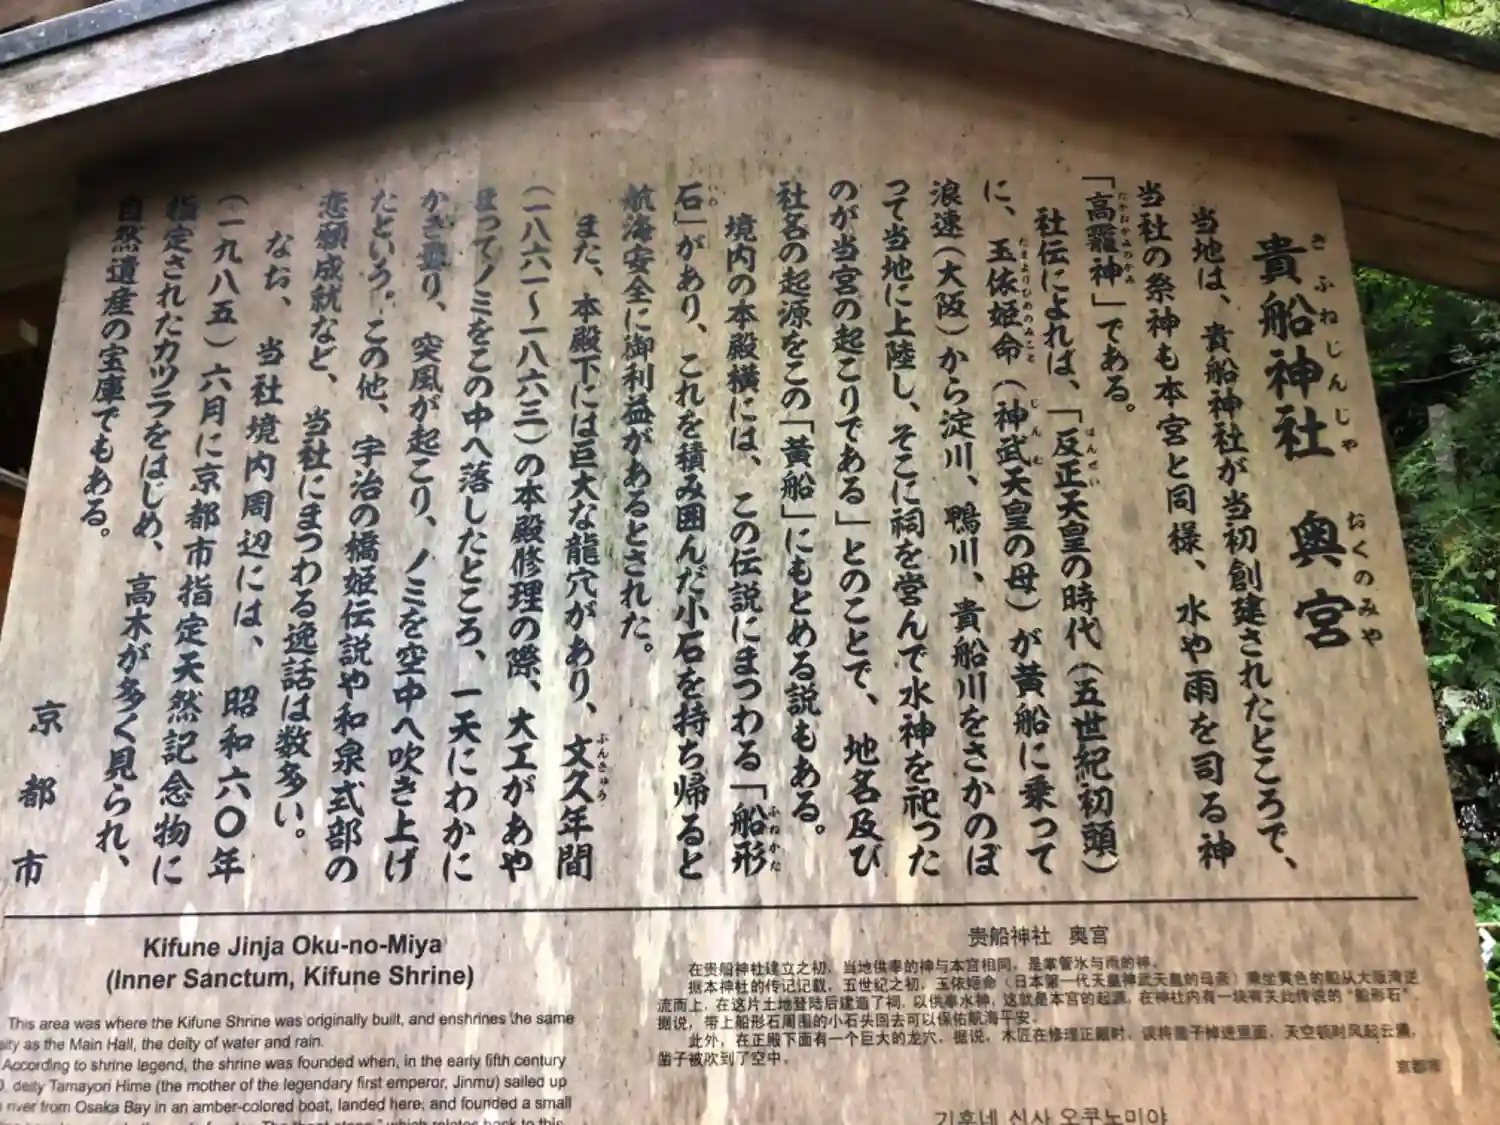 貴船神社　奥宮
きふねじんじゃ　おくのみや
当地は、貴船神社が当初創建されたところで、
当社の祭神も本宮と同様、水や雨を司る神
「高龗神」である。
たかおかみのかみ
社伝によれば、「反正天皇の時代（五世紀初頭）
はんぜい
に、玉依姫命（神武天皇の母）が黄船に乗って
たまよりひめのみこと　じんむ
浪速（大阪）から淀川、鴨川、貴船川をさかのぼ
って当地に上陸し、そこに祠を営んで水神を祀った
のが当宮の起こりである」とのことで、地名及び
社名の起源をこの「黄船」にもとめる説もある。
境内の本殿横には、この伝説にまつわる「船形
ふねかた
石」があり、これを積み囲んだ小石を持ち帰ると
いわ
航海安全に御利益があるとされた。
また、本殿下には巨大な龍穴があり、文久年間
ぶんきゅう
（一八六一～一八六三）の本殿修理の際、大工があや
まってノミをこの中へ落したところ、一天にわかに
かき曇り、突風が起こり、ノミを空中へ吹き上げ
たという。この他、宇治の橋姫伝説や和泉式部の
恋願成就など、当社にまつわる逸話は数多い。
なお、当社境内周辺には、昭和六〇年
（一九八五）六月に京都市指定天然記念物に
指定されたカツラをはじめ、高木が多く見られ、
自然遺産の宝庫でもある。
京都市
Kifune Jinja Oku-no-Miya
(Inner Sanctum, Kifune Shrine)
This area was where the Kifune Shrine was originally built, and enshrines the same
as the Main Hall, the deity of water and rain.
According to shrine legend, the shrine was founded when, in the early fifth century
deity Tamayori Hime (the mother of the legendary first emperor, Jinmu) sailed up
river from Osaka Bay in an amber-colored boat, landed here, and founded a small
which relates back to this
贵船神社　奥宫
在贵船神社建立之初，当地供奉的神与本宫相同，是掌管水与雨的神。
据本神社的传记记载，五世纪之初，玉依姬命（日本第一代天皇神武天皇的母亲）乘坐黄色的船从大阪湾逆
流而上，在这片土地登陆后建造了祠，以供奉水神，这就是本宫的起源。在神社内有一块有关此传说的“船形石”
据说，带上船形石周围的小石头回去可以保佑航海平安。
此外，在正殿下面有一个巨大的龙穴，据说，木匠在修理正殿时，误将凿子掉进里面，天空顿时风起云涌，
凿子被吹到了空中。
京都市
기후네 신사 오쿠노미야